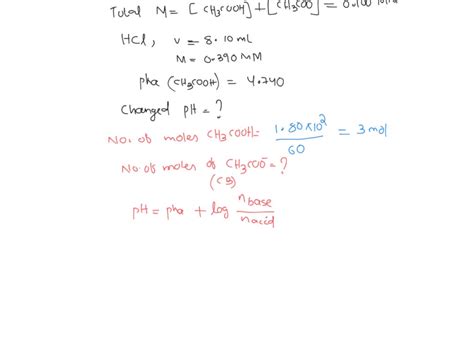 Total M = [CH3COOH] + [CH3COO] = 0.100
HCl, v = 8.10 mL
M = 0.390 MM
pka (CH3COOH) = 4.740
Changed pH = ?
No. of moles CH3COOH = 1.80×10² / 60 = 3 mol
No. of moles of CH3COO⁻ = ?
(CB)
pH = pka + log n base / n acid